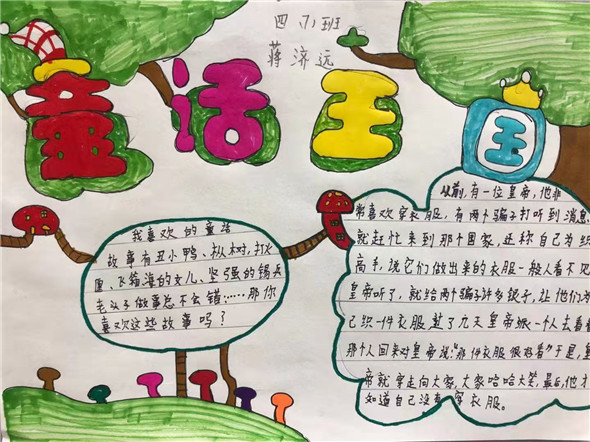 四（1）班
蒋济远
童话王国
我喜欢的童话
故事有丑小鸭、枞树、打火
匣、飞箱、海的女儿、坚强的锡兵
老头子做事总不会错……那你
喜欢这些故事吗？
从前，有一位皇帝，他非
常喜欢穿衣服，有两个骗子打听到消息
就赶忙来到那个国家，还称自己为织
高手，说它们做出来的衣服一般人看不见
皇帝听了，就给两个骗子许多银子，让他们为
己织一件衣服 过了几天皇帝派一个人去看看
那个人回来对皇帝说："那件衣服很好看"于是，皇
帝就穿走向大家，大家哈哈大笑，最后，他才
知道自己没有穿衣服。